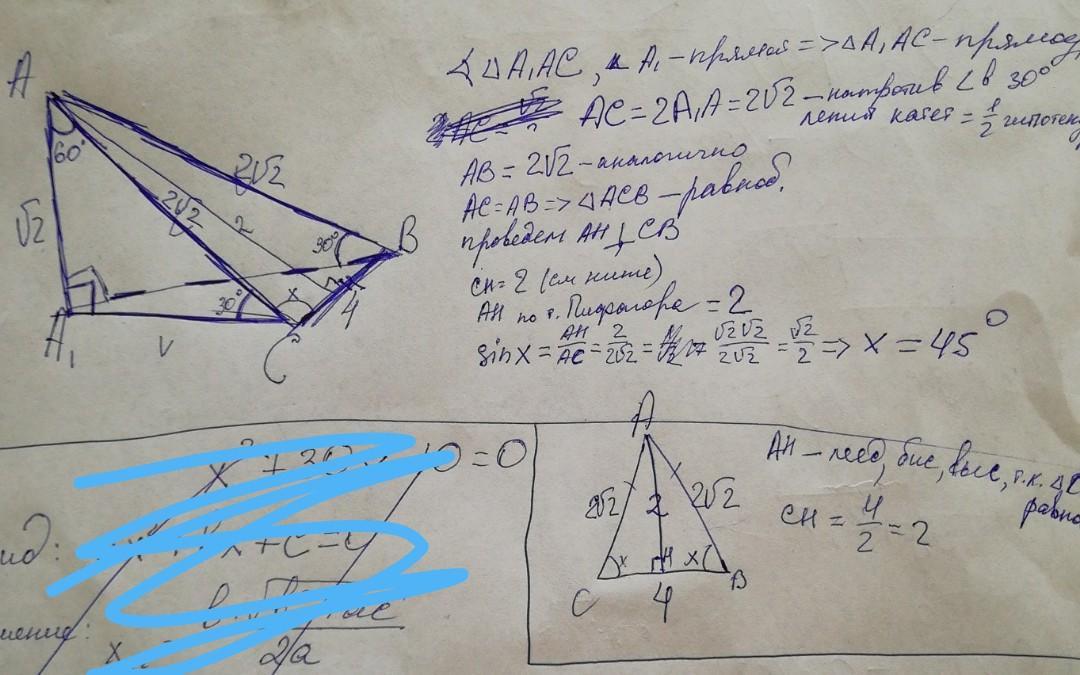 A
60°
√2
2√2
2√2
2
30°
B
30°
x
4
A₁
C
∠ △A₁AC, ∠A₁ - прямой => △A₁AC - прямоу
AC = 2A₁A = 2√2 - напротив ∠ в 30°
лежит катет = 1/2 гипотену
AB = 2√2 - аналогично
AC = AB => △ACB - равноб.
проведем AH ⊥ CB
CH = 2 (см ниже)
AH по т. Пифагора = 2
sin x = AH/AC = 2/2√2 = √2√2/2√2 = √2/2 => x = 45°
= 0
2a
A
2√2
2
2√2
x
H
x
C
4
B
AH - мед, бис, выс, т.к. △
равно
CH = 4/2 = 2